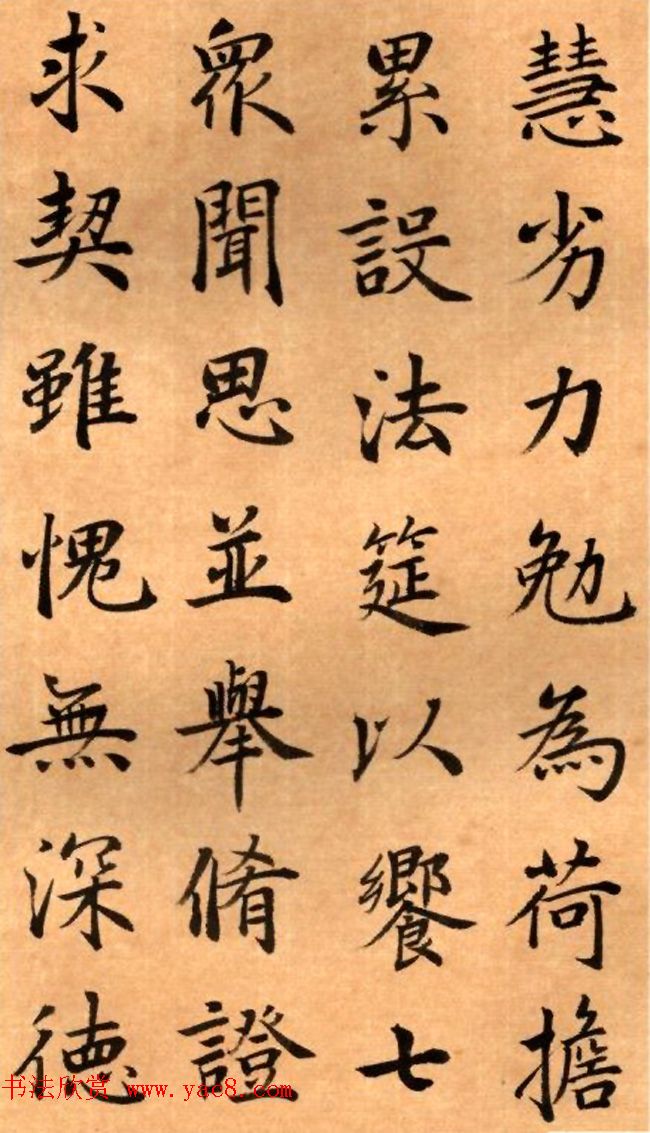 慧劣力勉為荷擔
累設法筵以饗七
眾聞思並舉脩證
求契雖愧無深德
书法欣赏 www.yac8.com